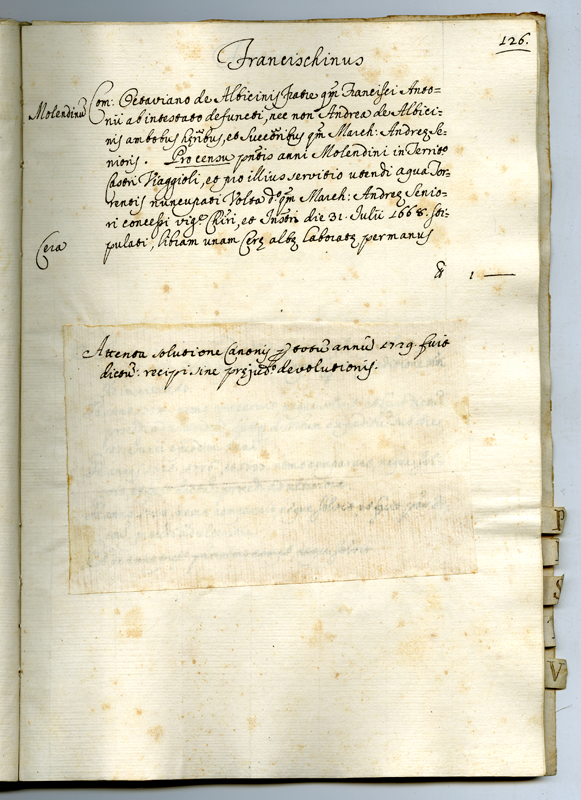 126.
Francischinus
Molendinũ
Com: Octaviano de Albicinis fratre qm̃ Francisci Anto=
nii ab intestato defuncti, nec non Andrea de Albici=
nis ambobus hęribus, et Successoribus qm̃ March: Andreę Se=
nioris. Pro censu pñtis anni Molendini in Territo
Castri Viaggioli, et pro illius servitio utendi aqua Tor=
rentis nuncupati Volta d. qm̃ March: Andreę Senio=
ri concessi vig.e Chiri, et Instri die 31. Iulii 1668. sti=
pulati, libram unam Cerę albę laboratę per manus
Cera
1 —
Attenta solutione Canonis p totũ annũ 1729. fuit
dictũ: recipi sine pręjud.o devolutionis.
P
I
S
T
V